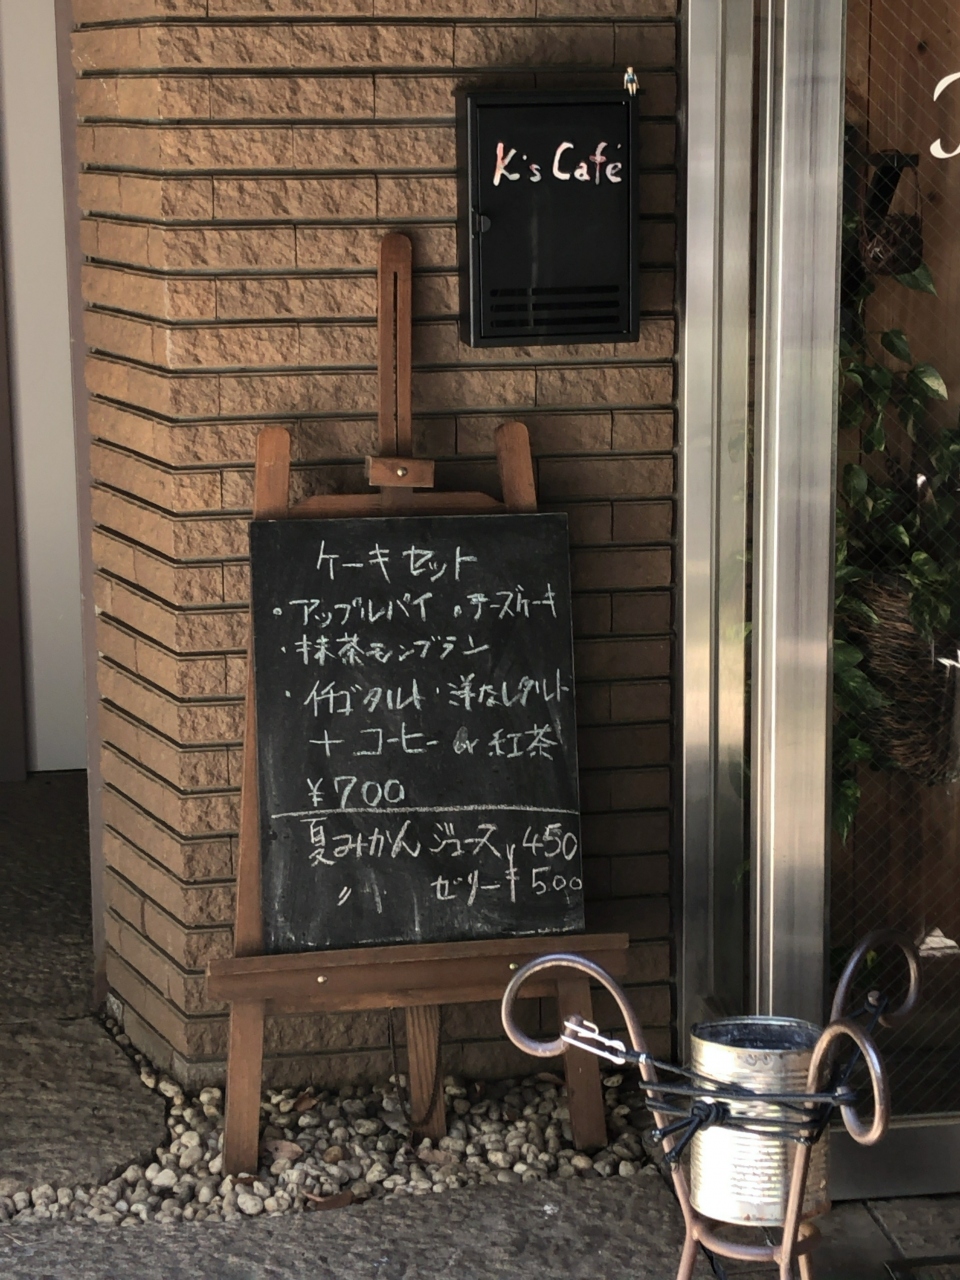 K's Café
ケーキセット
・アップルパイ ・チーズケーキ
・抹茶モンブラン
・イチゴタルト・洋なしタルト
+ コーヒー or 紅茶
¥700
夏みかん ジュース ¥450
〃 ゼリー ¥500